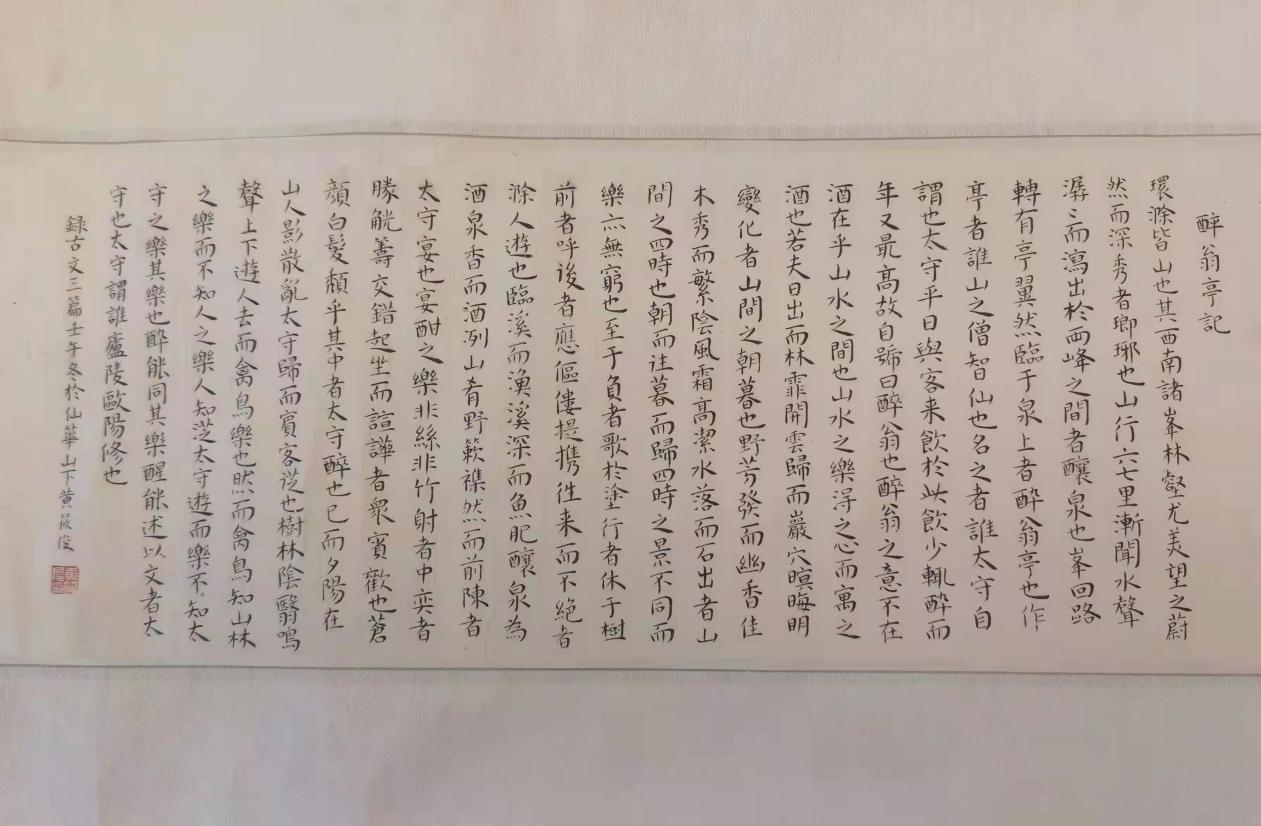 醉翁亭記
環滁皆山也其西南諸峯林壑尤美望之蔚
然而深秀者瑯琊也山行六七里漸聞水聲
潺〻而瀉出於兩峰之間者釀泉也峯回路
轉有亭翼然臨于泉上者醉翁亭也作
亭者誰山之僧智仙也名之者誰太守自
謂也太守平日與客来飲於此飲少輒醉而
年又最高故自號曰醉翁也醉翁之意不在
酒在乎山水之間也山水之樂淂之心而寓之
酒也若夫日出而林霏開雲歸而巖穴暝晦明
變化者山間之朝暮也野芳發而幽香佳
木秀而繁陰風霜高潔水落而石出者山
間之四時也朝而往暮而歸四時之景不同而
樂亦無窮也至于負者歌於塗行者休于樹
前者呼後者應傴僂提携往来而不絕者
滁人遊也臨溪而漁溪深而魚肥釀泉為
酒泉香而酒洌山肴野蔌襍然而前陳者
太守宴也宴酣之樂非絲非竹射者中奕者
勝觥籌交錯起坐而諠譁者衆賓歡也蒼
顔白髮頹乎其中者太守醉也已而夕陽在
山人影散亂太守歸而賓客從也樹林陰翳鳴
聲上下遊人去而禽鳥樂也然而禽鳥知山林
之樂而不知人之樂人知從太守遊而樂不知太
守之樂其樂也醉能同其樂醒能述以文者太
守也太守謂誰廬陵歐陽修也
錄古文三篇壬午冬於仙華山下黄筱俊